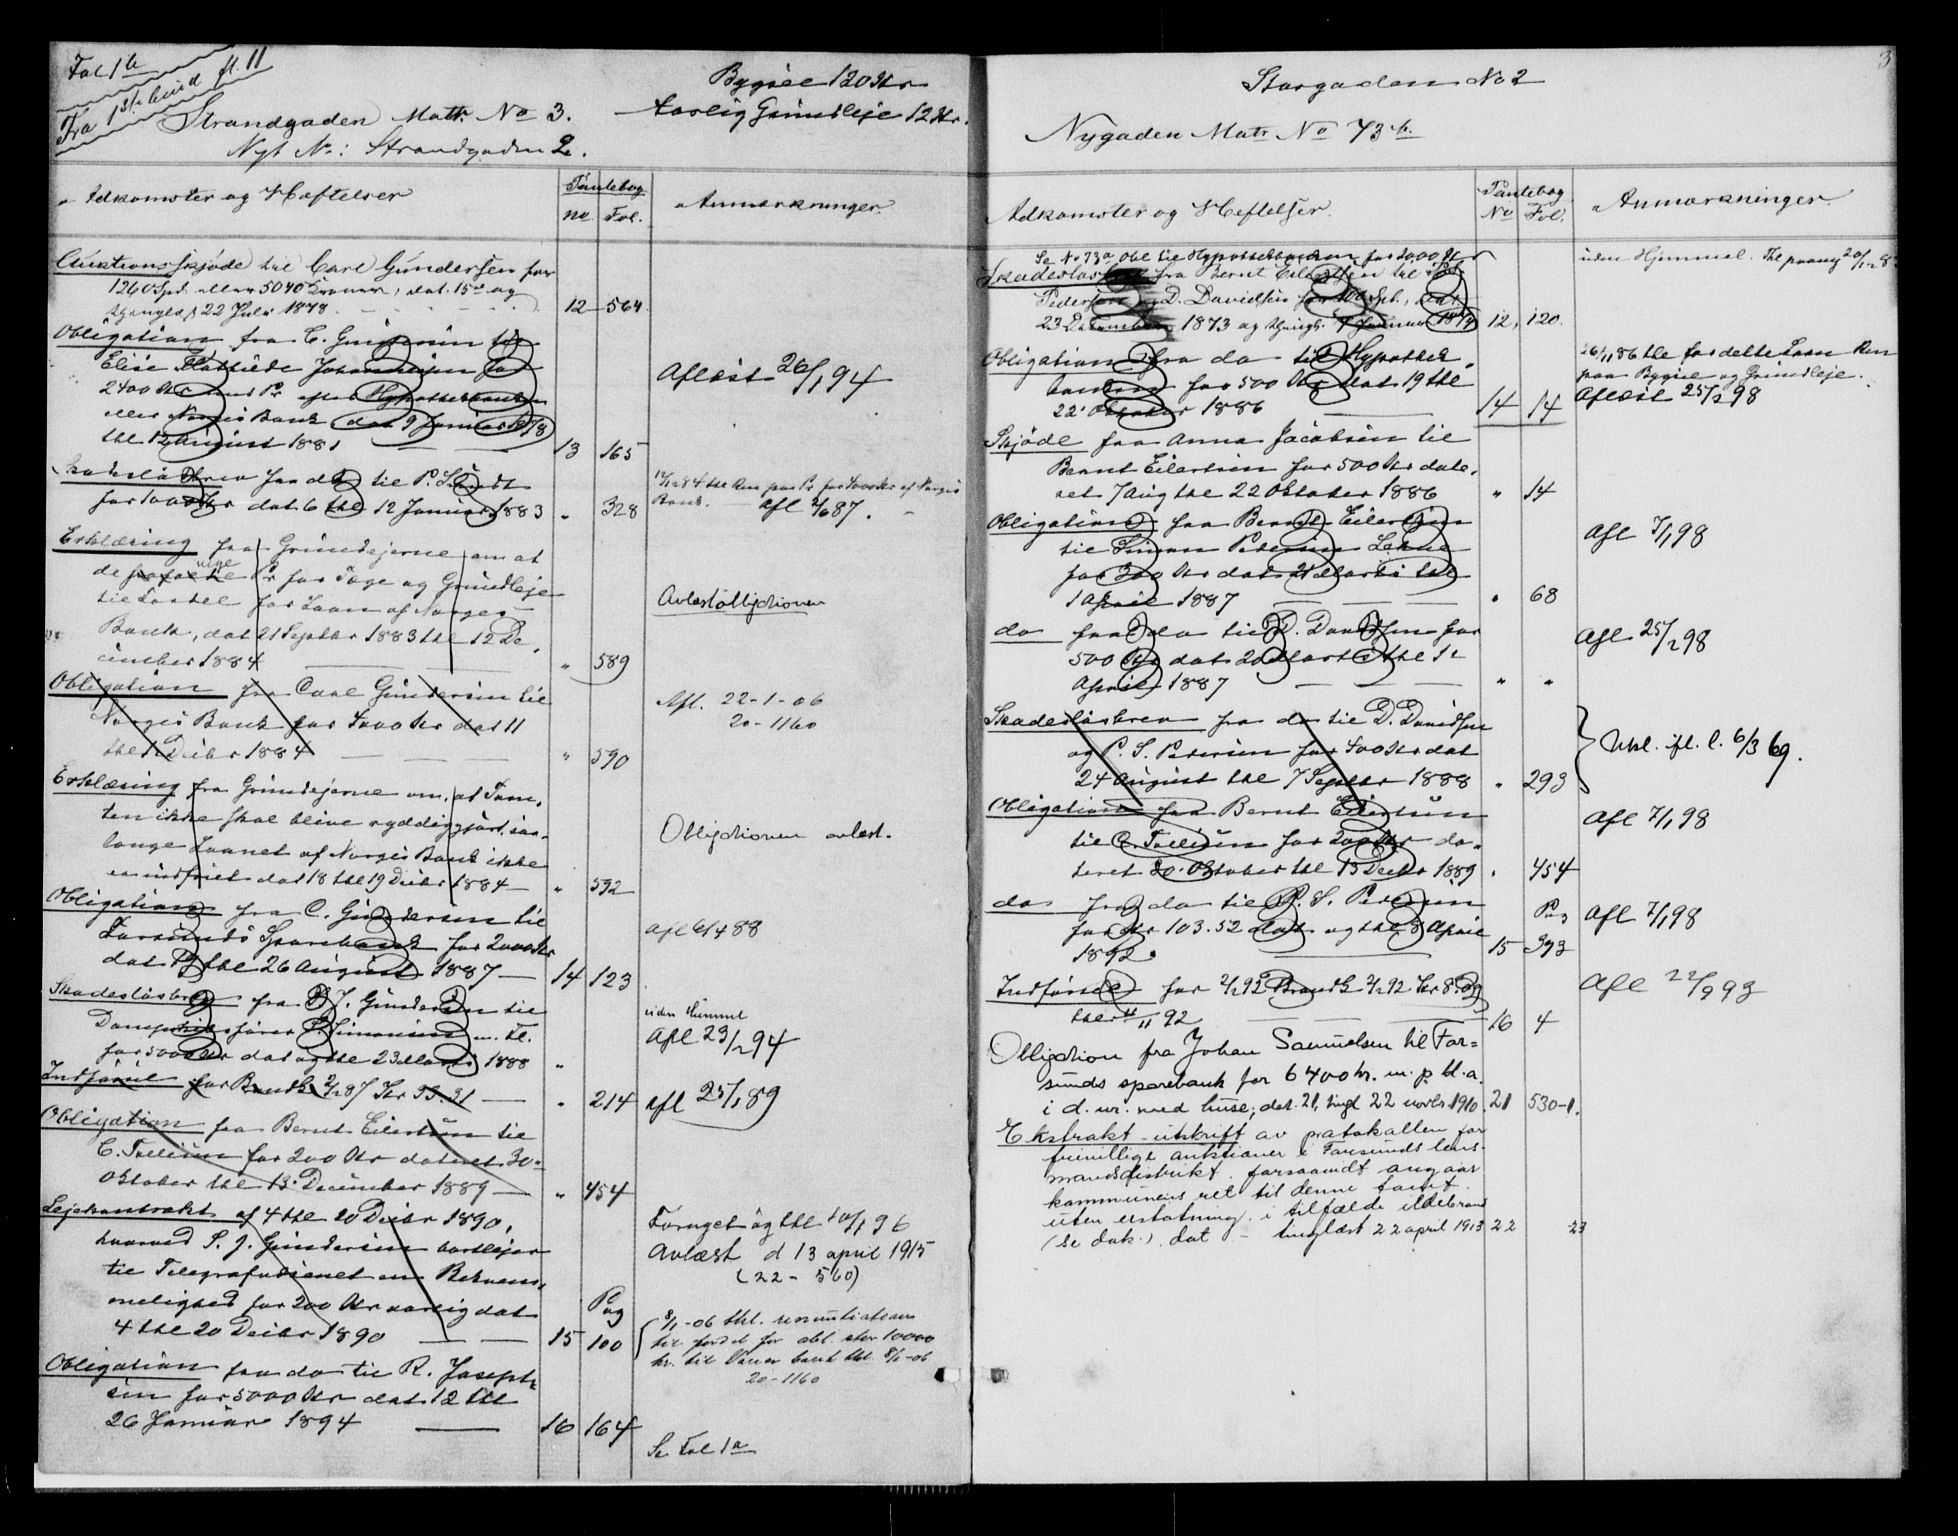 Fol 1 b
Fra 1ste bind fl. 11
Strandgaden Matr. No 3.
Nyt Nr: Strandgaden 2.
Bygsel 120 Kr
Aarlig Grundleje 12 Kr.
Adkomster og Hæftelser
Pantebog
No Fol.
Anmærkninger.
Auktionsskjøde til Carl Gundersen for
1260 Spd. eller 5040 Kroner, dat. 15de og
thinglæst 22 Juli 1878 12 564
Obligation fra C. Gundersen til
Elise Johannesen for
2400 Kr med Pr. efter Hypothekbanken
eller Norges Bank dat 9 Januar 1878
thl 12 August 1881 13 165
Afløst 26/1 94
Skadesløsbrev fra do til P. Lundt
for 1000 Kr dat 6 thl 12 Januar 1883 " 328
12/12 84 thl Ren paa Pr for 5000 Kr af Norges
Bank. Afl 2/6 87.
Erklæring fra Grundejerne om at
de vige Pr for Tage og Grundleje
til Fordel for Laan af Norges
Bank, dat 21 Septbr 1883 thl 12 De-
cember 1884 " 589
Avlæst obligationen
Obligation fra Carl Gundersen til
Norges Bank for 5000 Kr dat 11
thl 12 Decbr 1884 " 590
Afl. 22-1-06
20-1160
Erklæring fra Grundejerne om, at Tom-
ten ikke skal blive ryddiggjort, saa-
længe Laanet af Norges Bank ikke
er indfriet dat 18 thl 19 Decbr 1884 " 592
Obligationen avlæst.
Obligation fra C. Gundersen til
Farsunds Sparebank for 2000 Kr
dat 19 thl 26 August 1887 14 123
Afl 6/4 88
Skadesløsbrev fra S. J. Gundersen til
Dampskibsfører S. Simonsen m. Fl.
for 5000 Kr dat og thl 23 Marts 1888 "
uden Hjemmel
Afl 23/2 94
Indførsel for Brandk 2/2 87 Kr 33.31 " 214
Afl 25/1 89
Obligation fra Bernt Eilertsen til
C. Tollisen for 200 Kr dateret 30-
Oktober thl 13 December 1889 " 454
Lejekontrakt af 4 thl 20 Decbr 1890,
hvorved S. J. Gundersen bortlejer
til Telegrafvæsenet en Bekvem-
melighed for 200 Kr aarlig dat
4 thl 20 Decbr 1890 15 Pag 100
Fornyet og thl 10/1 96
Avlæst d 13 april 1915
(22 - 560)
Obligation fra do til R. Joseph-
sen for 5000 Kr dat 12 thl
26 Januar 1894 16 164
8/1-06 thl. renuntiationen
til fordel for obl. stor 10000
kr. til Vanse bank thl. 8/1-06
20-1160
Se Fol 1 a
3
Storgaden No 2
Nygaden Matr No 73 b.
Adkomster og Hæftelser.
Pantebog
No Fol.
Anmærkninger.
Se No 73a Obl til Hypothekbanken for 2000 Kr
Skadesløsbrev fra Bernt Eilertsen til P. S.
Pedersen og D. Davidsen for 100 Spd., dat.
23 December 1873 og thingl. 9 Januar 1874 12, 120.
uden Hjemmel.
Obligation fra do til Hypothek-
banken for 500 Kr dat 19 thl
22 Oktober 1886 14 14
26/11 86 thl for dette Laan Ren
paa Bygsel og Grundleje.
Afløst 25/2 98
Skjøde fra Anna Jacobsen til
Bernt Eilertsen for 500 Kr date-
ret 7 Aug thl 22 Oktober 1886 " 14
Obligation fra Bernt Eilertsen
til Simon Pedersen Lehne
for 300 Kr dat 21 Marts thl
1 April 1887 " 68
Afl 7/1 98
do fra do til D. Davidsen for
500 Kr dat 20 Marts thl 1
April 1887 " "
Afl 25/2 98
Skadesløsbrev fra do til D. Davidsen
og P. S. Pedersen for 400 Kr dat
24 August thl 7 Septbr 1888 " 293
Utsl. ifl. l. 6/3 69.
Obligation fra Bernt Eilertsen
til C. Tollisen for 200 Kr da-
teret 30 Oktober thl 13 Decbr 1889 " 454
Afl 7/1 98
do fra do til P. S. Pedersen
for Kr 103.52 dat og thl 8 April
1892. 15 Pag 393
Afl 7/1 98
Indførsel for 2/2 92 Brandk 2/2 92 Kr 8.39
thl 4/11 92 16 4
Afl 22/9 93
Obligation fra Johan Samuelsen til Far-
sunds sparebank for 6400 kr. m. p. bl. a.
i d. nr. med huse, dat. 21, tingl 22 novbr. 1910. 21 530-1.
Ekstrakt-utskrift av protokollen for
frivillige auktioner i Farsunds lens-
mandsdistrikt, forsaavidt angaar
kommunens ret til denne tomt
uten erstatning i tilfælde ildebrand
(se dok.). dat - tinglæst 22 april 1913 22 23